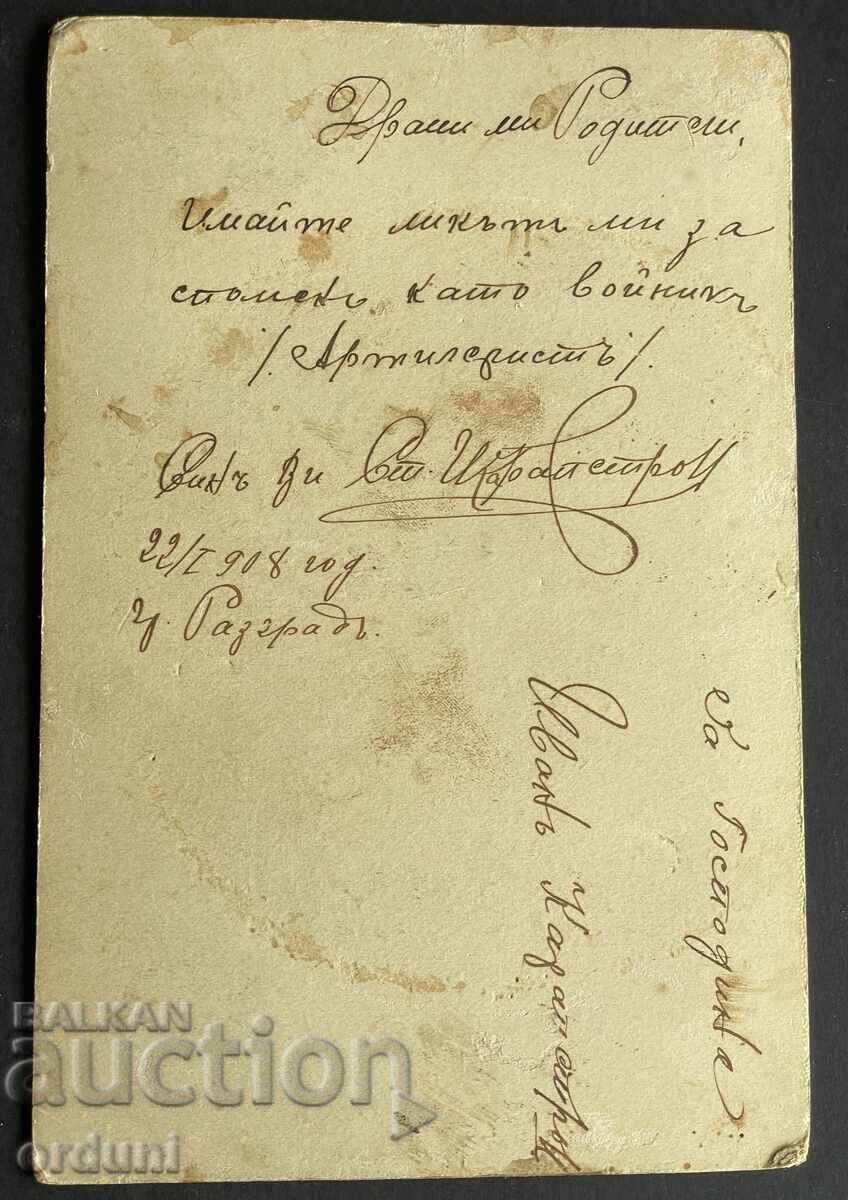 Драги ми Родители,
Имайте ликътъ ми за
споменъ като войникъ
/.Артилеристъ/.
Синъ Ви Ст. И.
22/I 908 год.
гр. Разградъ.
За Господина
Иванъ Карапетров
BALKAN
auction
orduni